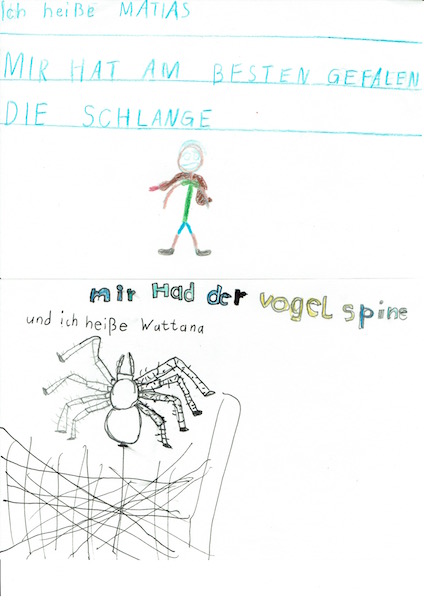 Ich heiße MATIAS
MIR HAT AM BESTEN GEFALEN
DIE SCHLANGE
mir Had der vogel spine
und ich heiße Wattana